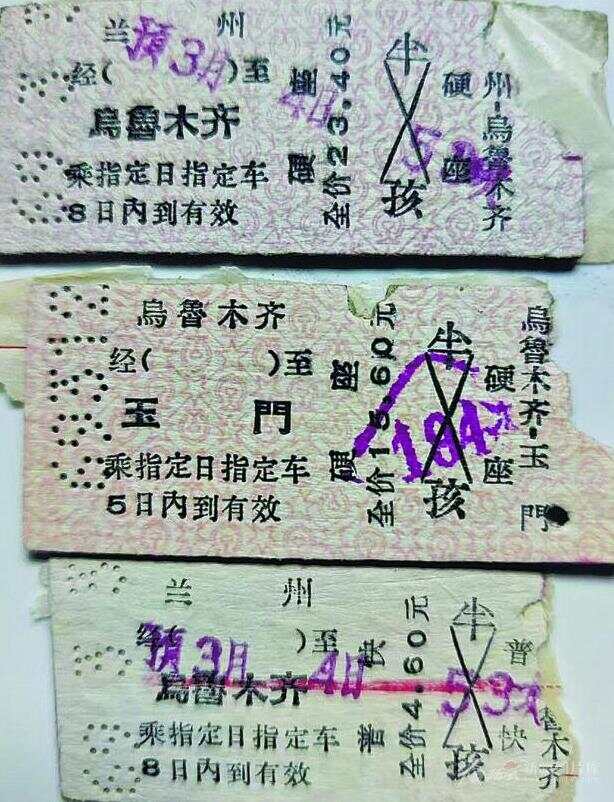 兰州
经( )至
預3月4日
烏魯木齐
乘指定日指定车
8日内到有效
硬座
全价23.40元
半孩
硬座
53次
州-烏魯木齐
烏魯木齐
经( )至
玉門
乘指定日指定车
5日内到有效
硬座
全价15.60元
半孩
184次
硬座
烏魯木齐-玉門
兰州
经( )至
預3月4日
烏魯木齐
乘指定日指定车
8日内到有效
普快
全价4.60元
半孩
53次
普快
魯木齐